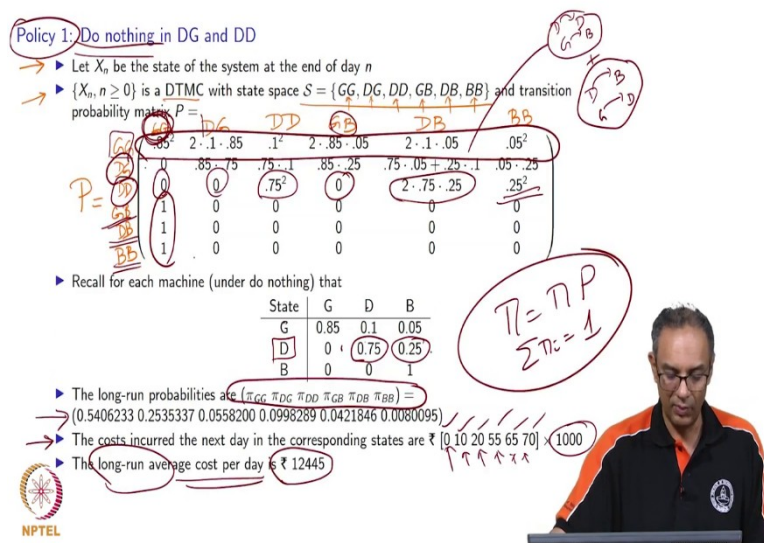 Policy 1: Do nothing in DG and DD
Let Xₙ be the state of the system at the end of day n
{Xₙ, n ≥ 0} is a DTMC with state space S = {GG, DG, DD, GB, DB, BB} and transition
probability matrix P =
GG DG DD GB DB BB
GG .85² 2 · .1 · .85 .1² 2 · .85 · .05 2 · .1 · .05 .05²
DG 0 .85 · .75 .75 · .1 .85 · .25 .75 · .05 + .25 · .1 .05 · .25
DD 0 0 .75² 0 2 · .75 · .25 .25²
GB 1 0 0 0 0 0
DB 1 0 0 0 0 0
BB 1 0 0 0 0 0
P =
D D
G B
+
D B
G D
Recall for each machine (under do nothing) that
State G D B
G 0.85 0.1 0.05
D 0 0.75 0.25
B 0 0 1
π = π P
Σ πᵢ = 1
The long-run probabilities are (π_GG π_DG π_DD π_GB π_DB π_BB) =
(0.5406233 0.2535337 0.0558200 0.0998289 0.0421846 0.0080095)
The costs incurred the next day in the corresponding states are ₹ [0 10 20 55 65 70] × 1000
The long-run average cost per day is ₹ 12445
NPTEL